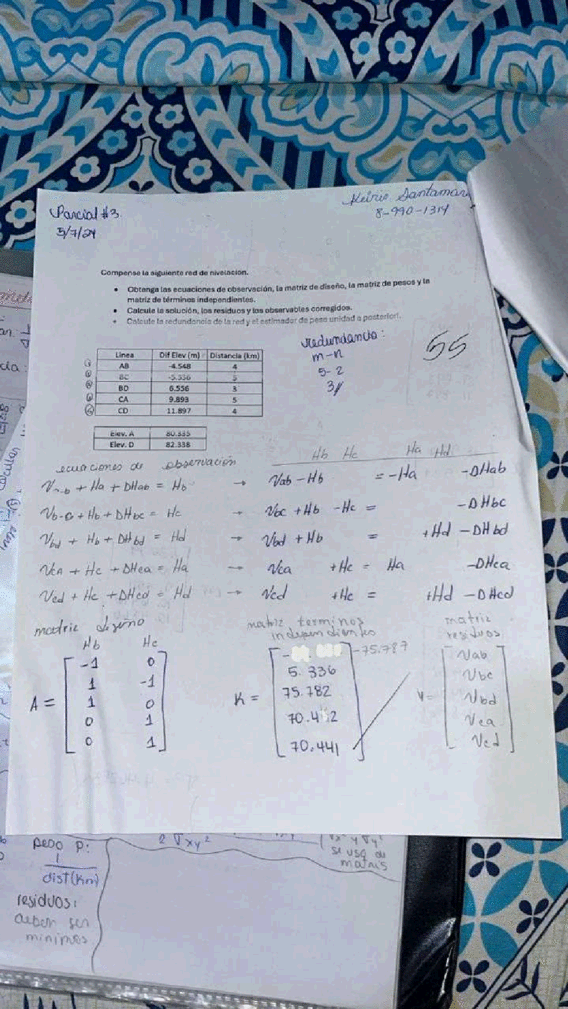 Parcial #3
5/7/24
Santamar
8-990-1314
Compense la siguiente red de nivelación.
• Obtenga las ecuaciones de observación, la matriz de diseño, la matriz de pesos y la matriz de términos independientes.
• Calcule la solución, los residuos y los observables corregidos.
• Calcule la redundancia de la red y el estimador de peso unidad a posteriori.
Redundancia:
m-n
5-2
3
55
Linea Dif Elev (m) Distancia (km)
AB -4.548 4
BC -5.336 5
BD 6.556 3
CA 9.893 5
CD 11.897 4
Elev. A 80.335
Elev. D 82.338
ecuaciones de observación
Hb Hc Ha Hd
Va-b + Ha + DHab = Hb → Vab - Hb = -Ha -DHab
Vb-c + Hb + DHbc = Hc → Vbc + Hb - Hc = -DHbc
Vbd + Hb + DHbd = Hd → Vbd + Hb = +Hd -DHbd
Vca + Hc + DHca = Ha → Vca +Hc = Ha -DHca
Vcd + Hc + DHcd = Hd → Vcd +Hc = +Hd -DHcd
matriz diseño
Hb Hc
A =
-1 0
1 -1
1 0
0 1
0 1
matriz terminos independientes
K =
-75.787
5.336
75.782
70.442
70.441
matriz residuos
V =
Vab
Vbc
Vbd
Vca
Vcd
peso P:
1
dist(km)
residuos:
deben ser
minimos
se usa de
matris